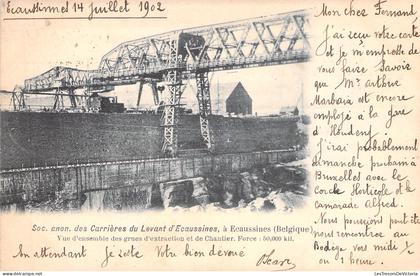 Ecaussinnes 14 juillet 1902
Soc. anon. des Carrières du Levant d'Ecaussines, à Ecaussines (Belgique)
Vue d'ensemble des grues d'extraction et de Chantier. Force : 50,000 kil.
En attendant je reste Votre bien dévoué
Oscar
Mon cher Fernand
J'ai reçu votre carte
et je m'empresse de
vous faire savoir
que Mr. Arthur
Marbaix est encore
employé à la gare
d'Houdeng.
J'irai probablement
dimanche prochain à
Bruxelles avec le
cercle Horticole et le
camarade Alfred.
Nous pourrions peut être
nous rencontrer au
vers midi
ou 1 heure.
© delcampe.net
LesTresorsDeVictoria